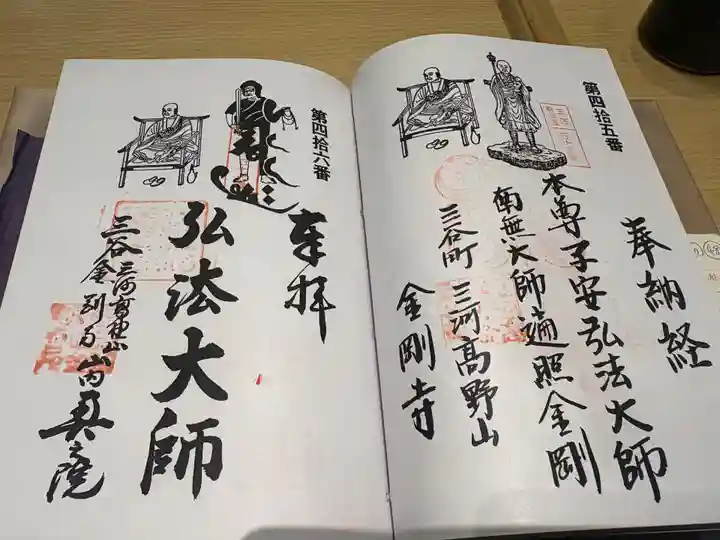 第四拾五番
奉納経
本尊子安弘法大師
南無大師遍照金剛
三河高野山
三谷町
金剛寺
第四拾六番
奉拝
弘法大師
三河高野山
三谷金剛寺山内
奥之院